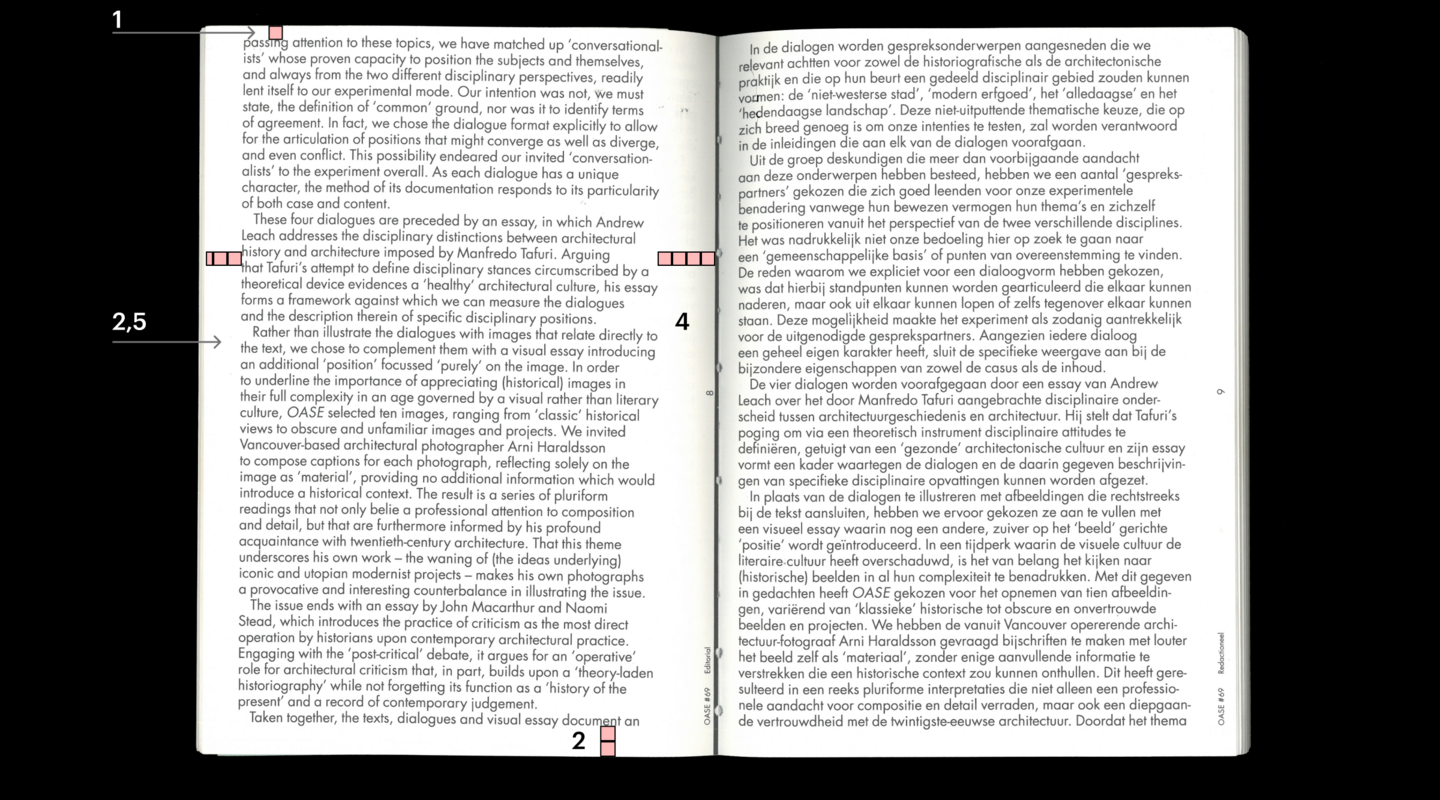 1
passing attention to these topics, we have matched up ‘conversational-
ists’ whose proven capacity to position the subjects and themselves,
and always from the two different disciplinary perspectives, readily
lent itself to our experimental mode. Our intention was not, we must
state, the definition of ‘common’ ground, nor was it to identify terms
of agreement. In fact, we chose the dialogue format explicitly to allow
for the articulation of positions that might converge as well as diverge,
and even conflict. This possibility endeared our invited ‘conversation-
alists’ to the experiment overall. As each dialogue has a unique
character, the method of its documentation responds to its particularity
of both case and content.
These four dialogues are preceded by an essay, in which Andrew
Leach addresses the disciplinary distinctions between architectural
history and architecture imposed by Manfredo Tafuri. Arguing
that Tafuri’s attempt to define disciplinary stances circumscribed by a
theoretical device evidences a ‘healthy’ architectural culture, his essay
forms a framework against which we can measure the dialogues
and the description therein of specific disciplinary positions.
2,5
4
Rather than illustrate the dialogues with images that relate directly to
the text, we chose to complement them with a visual essay introducing
an additional ‘position’ focussed ‘purely’ on the image. In order
to underline the importance of appreciating (historical) images in
their full complexity in an age governed by a visual rather than literary
culture, OASE selected ten images, ranging from ‘classic’ historical
views to obscure and unfamiliar images and projects. We invited
Vancouver-based architectural photographer Arni Haraldsson
to compose captions for each photograph, reflecting solely on the
image as ‘material’, providing no additional information which would
introduce a historical context. The result is a series of pluriform
readings that not only belie a professional attention to composition
and detail, but that are furthermore informed by his profound
acquaintance with twentieth-century architecture. That this theme
underscores his own work – the waning of (the ideas underlying)
iconic and utopian modernist projects – makes his own photographs
a provocative and interesting counterbalance in illustrating the issue.
The issue ends with an essay by John Macarthur and Naomi
Stead, which introduces the practice of criticism as the most direct
operation by historians upon contemporary architectural practice.
Engaging with the ‘post-critical’ debate, it argues for an ‘operative’
role for architectural criticism that, in part, builds upon a ‘theory-laden
historiography’ while not forgetting its function as a ‘history of the
present’ and a record of contemporary judgement.
Taken together, the texts, dialogues and visual essay document an
2
8
OASE #69 Editorial
In de dialogen worden gespreksonderwerpen aangesneden die we
relevant achtten voor zowel de historiografische als de architectonische
praktijk en die op hun beurt een gedeeld disciplinair gebied zouden kunnen
vormen: de ‘niet-westerse stad’, ‘modern erfgoed’, het ‘alledaagse’ en het
‘hedendaagse landschap’. Deze niet-uitputtende thematische keuze, die op
zich breed genoeg is om onze intenties te testen, zal worden verantwoord
in de inleidingen die aan elk van de dialogen voorafgaan.
Uit de groep deskundigen die meer dan voorbijgaande aandacht
aan deze onderwerpen hebben besteed, hebben we een aantal ‘gespreks-
partners’ gekozen die zich goed leenden voor onze experimentele
benadering vanwege hun bewezen vermogen hun thema’s en zichzelf
te positioneren vanuit het perspectief van de twee verschillende disciplines.
Het was nadrukkelijk niet onze bedoeling hier op zoek te gaan naar
een ‘gemeenschappelijke basis’ of punten van overeenstemming te vinden.
De reden waarom we expliciet voor een dialoogvorm hebben gekozen,
was dat hierbij standpunten kunnen worden gearticuleerd die elkaar kunnen
naderen, maar ook uit elkaar kunnen lopen of zelfs tegenover elkaar kunnen
staan. Deze mogelijkheid maakte het experiment als zodanig aantrekkelijk
voor de uitgenodigde gesprekspartners. Aangezien iedere dialoog
een geheel eigen karakter heeft, sluit de specifieke weergave aan bij de
bijzondere eigenschappen van zowel de casus als de inhoud.
De vier dialogen worden voorafgegaan door een essay van Andrew
Leach over het door Manfredo Tafuri aangebrachte disciplinaire onder-
scheid tussen architectuurgeschiedenis en architectuur. Hij stelt dat Tafuri’s
poging om via een theoretisch instrument disciplinaire attitudes te
definiëren, getuigt van een ‘gezonde’ architectonische cultuur en zijn essay
vormt een kader waartegen de dialogen en de daarin gegeven beschrijvin-
gen van specifieke disciplinaire opvattingen kunnen worden afgezet.
In plaats van de dialogen te illustreren met afbeeldingen die rechtstreeks
bij de tekst aansluiten, hebben we ervoor gekozen ze aan te vullen met
een visueel essay waarin nog een andere, zuiver op het ‘beeld’ gerichte
‘positie’ wordt geïntroduceerd. In een tijdperk waarin de visuele cultuur de
literaire cultuur heeft overschaduwd, is het van belang het kijken naar
(historische) beelden in al hun complexiteit te benadrukken. Met dit gegeven
in gedachten heeft OASE gekozen voor het opnemen van tien afbeeldin-
gen, variërend van ‘klassieke’ historische tot obscure en onvertrouwde
beelden en projecten. We hebben de vanuit Vancouver opererende archi-
tectuur-fotograaf Arni Haraldsson gevraagd bijschriften te maken met louter
het beeld zelf als ‘materiaal’, zonder enige aanvullende informatie te
verstrekken die een historische context zou kunnen onthullen. Dit heeft gere-
sulteerd in een reeks pluriforme interpretaties die niet alleen een professio-
nele aandacht voor compositie en detail verraden, maar ook een diepgaan-
de vertrouwdheid met de twintigste-eeuwse architectuur. Doordat het thema
9
OASE #69 Redactioneel